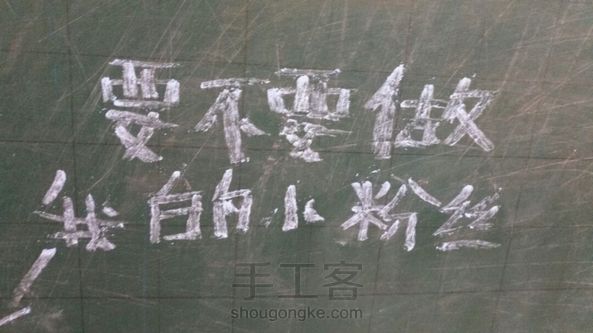 要不要做
我的小粉丝
手工客
shougongke.com